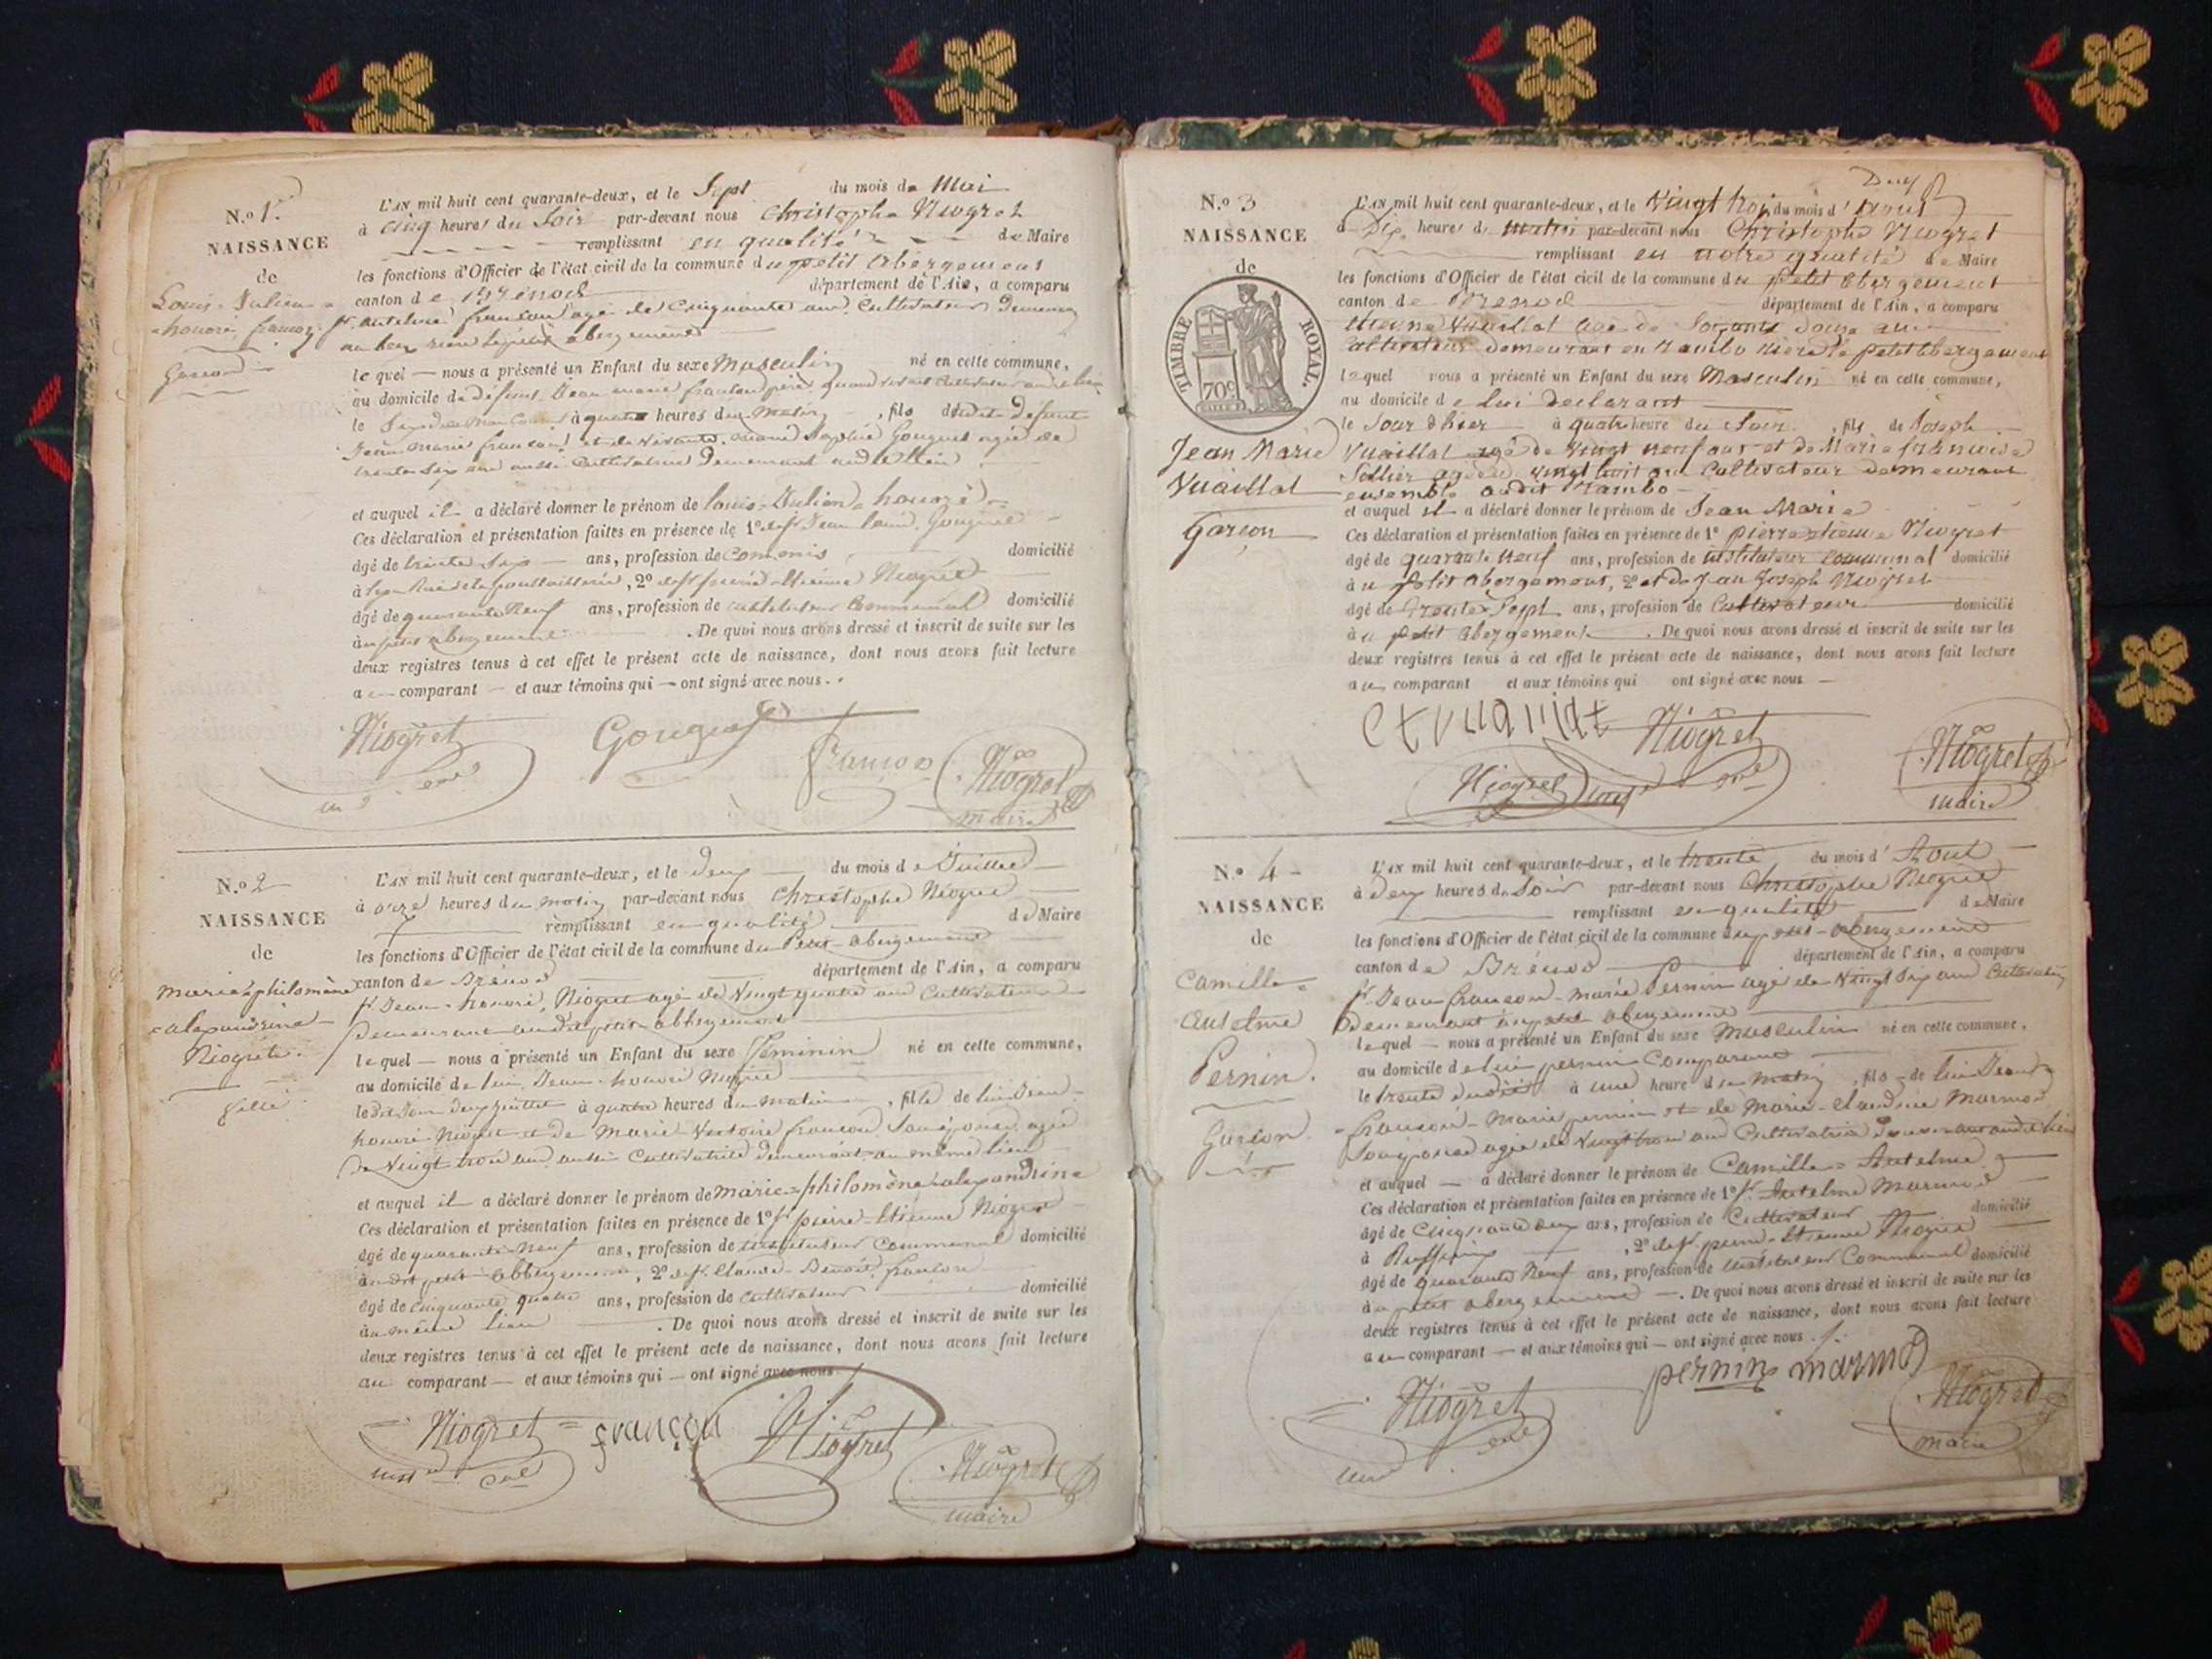 N.o 1.
NAISSANCE
de
Louis-Julien-
honoré françon
Garçon
L'AN mil huit cent quarante-deux, et le Sept du mois de Mai
à Cinq heures du Soir par-devant nous Christophe Niogret
remplissant en qualité de Maire
les fonctions d'Officier de l'état civil de la commune du petit abergement
canton de Brénod département de l'Ain, a comparu
agé de Cinquante ans Cultivateur
lequel — nous a présenté un Enfant du sexe Masculin né en cette commune,
au domicile de défunt Jean marie
le à quatre heures du Matin, fils dudit défunt
Jean marie françon et de
trente Six ans aussi Cultivatrice Demeurant audit lieu
et auquel il a déclaré donner le prénom de louis-Julien-honoré
Ces déclaration et présentation faites en présence de 1o
âgé de trente Six ans, profession de Commis domicilié
à , 2o Niogret
âgé de quarante Neuf ans, profession de instituteur Communal domicilié
au petit abergement . De quoi nous avons dressé et inscrit de suite sur les
deux registres tenus à cet effet le présent acte de naissance, dont nous avons fait lecture
au comparant — et aux témoins qui — ont signé avec nous.
Niogret Gouguet françon Niogret
maire
N.o 2
NAISSANCE
de
marie-philomène
-alexandrine-
Niogret.
fille
L'AN mil huit cent quarante-deux, et le deux du mois de Juillet
à onze heures du matin par-devant nous Christophe Niogret
remplissant en qualité de Maire
les fonctions d'Officier de l'état civil de la commune du Petit-abergement
canton de Brénod département de l'Ain, a comparu
Sr Jean-honoré Niogret agé de Vingt quatre ans Cultivateur
Demeurant audit petit abbergement
lequel — nous a présenté un Enfant du sexe Féminin né en cette commune,
au domicile de lui Jean-honoré Niogret
à quatre heures du matin, fille de lui Jean-
honoré Niogret et de Marie-Victoire françon Son épouse agée
de Vingt trois ans aussi Cultivatrice demeurant au même lieu
et auquel il a déclaré donner le prénom de marie-philomène-alexandrine
Ces déclaration et présentation faites en présence de 1o Sr pierre-Etienne Niogret
âgé de quarante-Neuf ans, profession de instituteur Communal domicilié
audit petit abbergement, 2o de Sr Claude-Benoit françon
âgé de cinquante quatre ans, profession de Cultivateur domicilié
au même lieu . De quoi nous avons dressé et inscrit de suite sur les
deux registres tenus à cet effet le présent acte de naissance, dont nous avons fait lecture
au comparant — et aux témoins qui — ont signé avec nous.
Niogret françon Niogret Niogret
maire
N.o 3
NAISSANCE
de
TIMBRE ROYAL.
70c
Jean Marie
Vuaillat
garçon
L'AN mil huit cent quarante-deux, et le Vingt trois du mois d'Aout
à Dix heures du matin par-devant nous Christophe Niogret
remplissant en notre qualité de Maire
les fonctions d'Officier de l'état civil de la commune du petit abergement
canton de Brenod département de l'Ain, a comparu
Etienne Vuaillat agé de Soixante douze ans
Cultivateur demeurant en petit abergement
lequel nous a présenté un Enfant du sexe Masculin né en cette commune,
au domicile de lui declarant
le Jour d'hier à quatre heure du Soir, fils de Joseph
Vuaillat agé de Vingt neuf ans et de Marie françoise
Sellier agée de vingt huit ans Cultivateur demeurant
ensemble audit Rambo
et auquel il a déclaré donner le prénom de Jean Marie
Ces déclaration et présentation faites en présence de 1o pierre etienne Niogret
âgé de quarante neuf ans, profession de instituteur communal domicilié
au petit abergement, 2o et de Jean Joseph Niogret
âgé de trente Sept ans, profession de Cultivateur domicilié
au petit abergement . De quoi nous avons dressé et inscrit de suite sur les
deux registres tenus à cet effet le présent acte de naissance, dont nous avons fait lecture
au comparant et aux témoins qui ont signé avec nous
Niogret
Niogret
Niogret
maire
N.o 4
NAISSANCE
de
Camille-
Antelme
Pernin.
Garçon
L'AN mil huit cent quarante-deux, et le trente du mois d'Aout
à deux heures du Soir par-devant nous Christophe Niogret
remplissant en qualité de Maire
les fonctions d'Officier de l'état civil de la commune du petit-abergement
canton de Brénod département de l'Ain, a comparu
Sr Jean françois-marie Pernin agé de Vingt Six ans Cultivateur
Demeurant au petit abergement
lequel — nous a présenté un Enfant du sexe Masculin né en cette commune,
au domicile de lui pernin Comparant
le trente dudit à une heure du matin, fils de lui Jean
françois-Marie pernin et de Marie-claudine Marmod
Son épouse agée de Vingt trois ans Cultivatrice Demeurant audit lieu
et auquel — a déclaré donner le prénom de Camille-Antelme
Ces déclaration et présentation faites en présence de 1o Sr Antelme Marmod
âgé de Cinquante deux ans, profession de Cultivateur domicilié
à Ruffieux, 2o de Sr pierre-Etienne Niogret
âgé de quarante Neuf ans, profession de instituteur Communal domicilié
au petit abergement — . De quoi nous avons dressé et inscrit de suite sur les
deux registres tenus à cet effet le présent acte de naissance, dont nous avons fait lecture
au comparant — et aux témoins qui — ont signé avec nous.
Niogret pernin marmod Niogret
maire